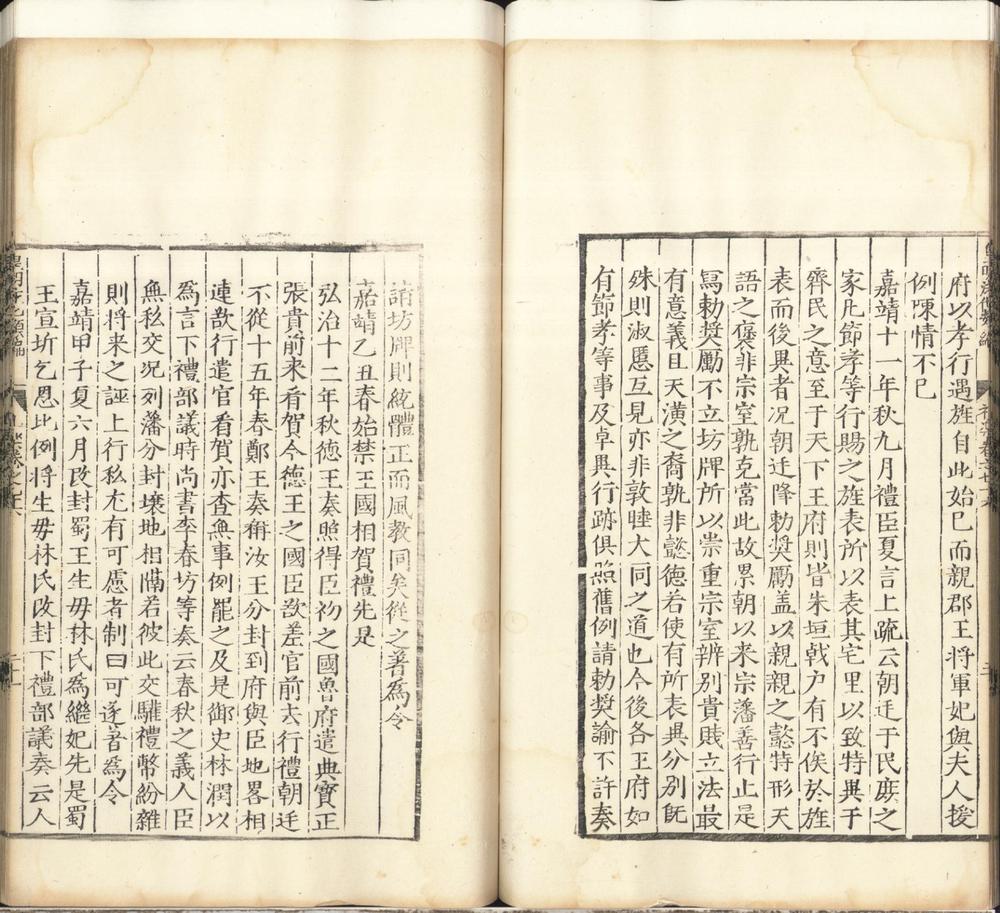 府以孝行遇旌自此始已而親郡王將軍妃與夫人援
例陳情不已
嘉靖十一年秋九月禮臣夏言上疏云朝廷于民庻之
家凡節孝等行賜之旌表所以表其宅里以致特異于
齊民之意至于天下王府則皆朱垣戟户有不俟於旌
表而後異者况朝廷降勅奬勵盖以親親之懿特形天
語之褒非宗室孰克當此故累朝以来宗藩善行止是
寫勅奬勵不立坊牌所以崇重宗室辨别貴賎立法最
有意義且天潢之裔孰非懿徳若使有所表異分别旣
殊則淑慝互見亦非敦睦大同之道也今後各王府如
有節孝等事及卓異行跡俱照舊例請勅奬諭不許奏
請坊牌則統體正而風教同矣從之著為令
嘉靖乙丑春始禁王國相賀禮先是
弘治十二年秋徳王奏照得臣初之國魯府遣典寳正
張貴前来看賀今德王之國臣欲差官前去行禮朝廷
不從十五年春鄭王奏稱汝王分封到府與臣地畧相
連欲行遣官看賀亦查無事例罷之及是御史林潤以
為言下禮部議時尚書李春坊等奏云春秋之義人臣
無私交况列藩分封壌地相隔若彼此交驩禮幣紛雜
則將来之誣上行私尤有可慮者制曰可遂著為令
嘉靖甲子夏六月改封蜀王生毋林氏為繼妃先是蜀
王宣圻乞恩比例將生毋林氏改封下禮部議奏云人